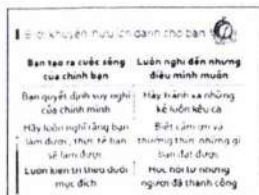 lời khuyên hữu ích dành cho bạn
Bạn tạo ra cuộc sống
của chính bạn
Luôn nghĩ đến những
điều mình muốn
Bạn quyết định suy nghĩ
của chính mình
Hãy tránh xa những
kẻ luôn kêu ca
Hãy luôn nghĩ rằng bạn
làm được, thực tế bạn
sẽ làm được
Biết cảm ơn và
thưởng thức những gì
bạn đạt được
Luôn kiên trì theo đuổi
mục đích
Học hỏi từ những
người đã thành công